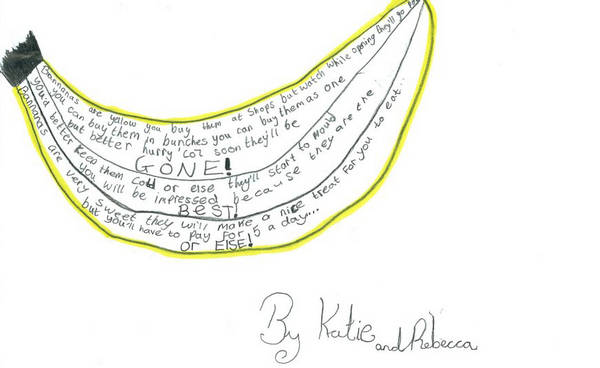 Bannanas are yallow you buy them at shops but watch while opening they'll go
you can buy them in bunches you can buy them as one
but better hurry 'coz soon they'll be
GONE!
you'd better keep them cold or else they'll start to mould
you will be impressed because they are the
BEST!
Bannanas are very sweet they will make a nice treat for you to eat...
but you'll have to pay for 5 a day....
or ELSE!
By Katie and Rebecca